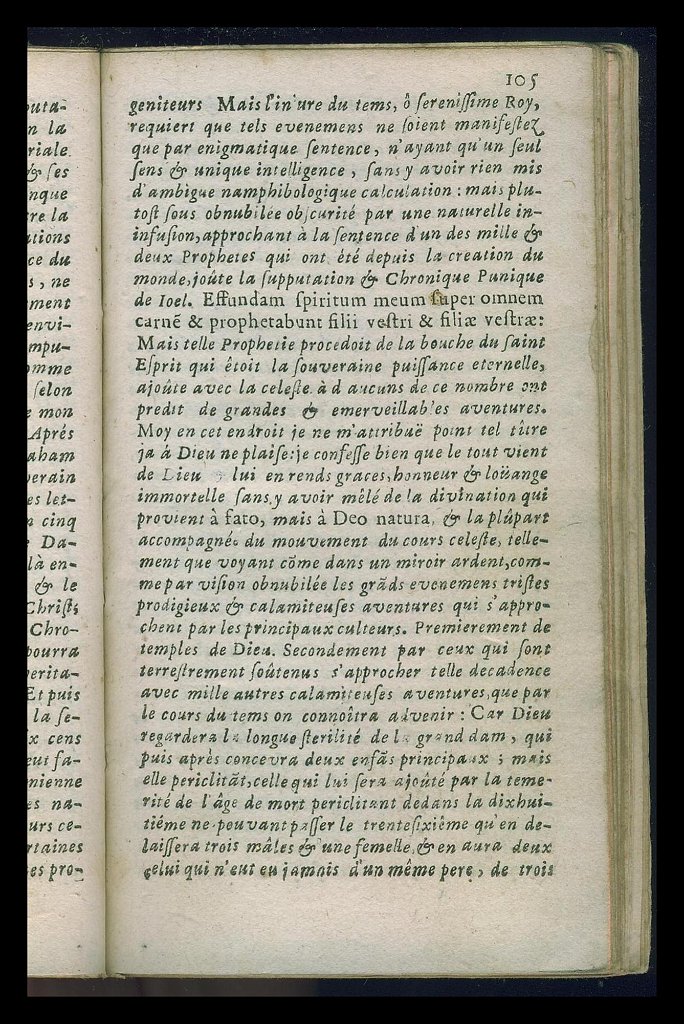 105
geniteurs Mais l'in'ure du tems, ô ſereniſſime Roy,
requiert que tels evenemens ne ſoient manifeſtez
que par enigmatique ſentence, n'ayant qu'un ſeul
ſens & unique intelligence, ſans y avoir rien mis
d'ambigue namphibologique calculation : mais plu-
toſt ſous obnubilée obſcurité par une naturelle in-
infuſion, approchant à la ſentence d'un des mille &
deux Prophetes qui ont été depuis la creation du
monde, joûte la ſupputation & Chronique Punique
de Ioel. Effundam ſpiritum meum ſuper omnem
carnē & prophetabunt filii veſtri & filiæ veſtræ:
Mais telle Prophetie procedoit de la bouche du ſaint
Eſprit qui êtoit la ſouveraine puiſſance eternelle,
ajoûte avec la celeſte à d'aucuns de ce nombre ont
predit de grandes & emerveillables aventures.
Moy en cet endroit je ne m'attribuë point tel tître
ja à Dieu ne plaiſe: je confeſſe bien que le tout vient
de Dieu lui en rends graces, honneur & loüange
immortelle ſans, y avoir mêlé de la divination qui
provient à fato, mais à Deo natura, & la plûpart
accompagné du mouvement du cours celeſte, telle-
ment que voyant cōme dans un miroir ardent, com-
me par viſion obnubilée les grāds evenemens triſtes
prodigieux & calamiteuſes aventures qui s'appro-
chent par les principaux culteurs. Premierement de
temples de Dieu. Secondement par ceux qui ſont
terreſtrement ſoûtenus s'approcher telle decadence
avec mille autres calamiteuſes aventures, que par
le cours du tems on connoîtra advenir : Car Dieu
regardera la longue ſterilité de la grand dam, qui
puis aprés concevra deux enfās principaux ; mais
elle periclitāt, celle qui lui ſera ajoûté par la teme-
rité de l'âge de mort periclitant dedans la dixhui-
tiéme ne pouvant paſſer le trenteſixiême qu'en de-
laiſſera trois mâles & une femelle, & en aura deux
celui qui n'eut eu jamais d'un même pere, de trois
puta-
n la
riale.
& ſes
nque
re la
ations
ce du
s, ne
ment
envi-
mpu-
omme
ſelon
e mon
Aprés
aham
verain
es let-
n cinq
Da-
là en-
& le
Chriſt;
Chro-
pourra
verita-
Et puis
la ſe-
x cens
eut fa-
nienne
es na-
urs ce-
rtaines
es pro-